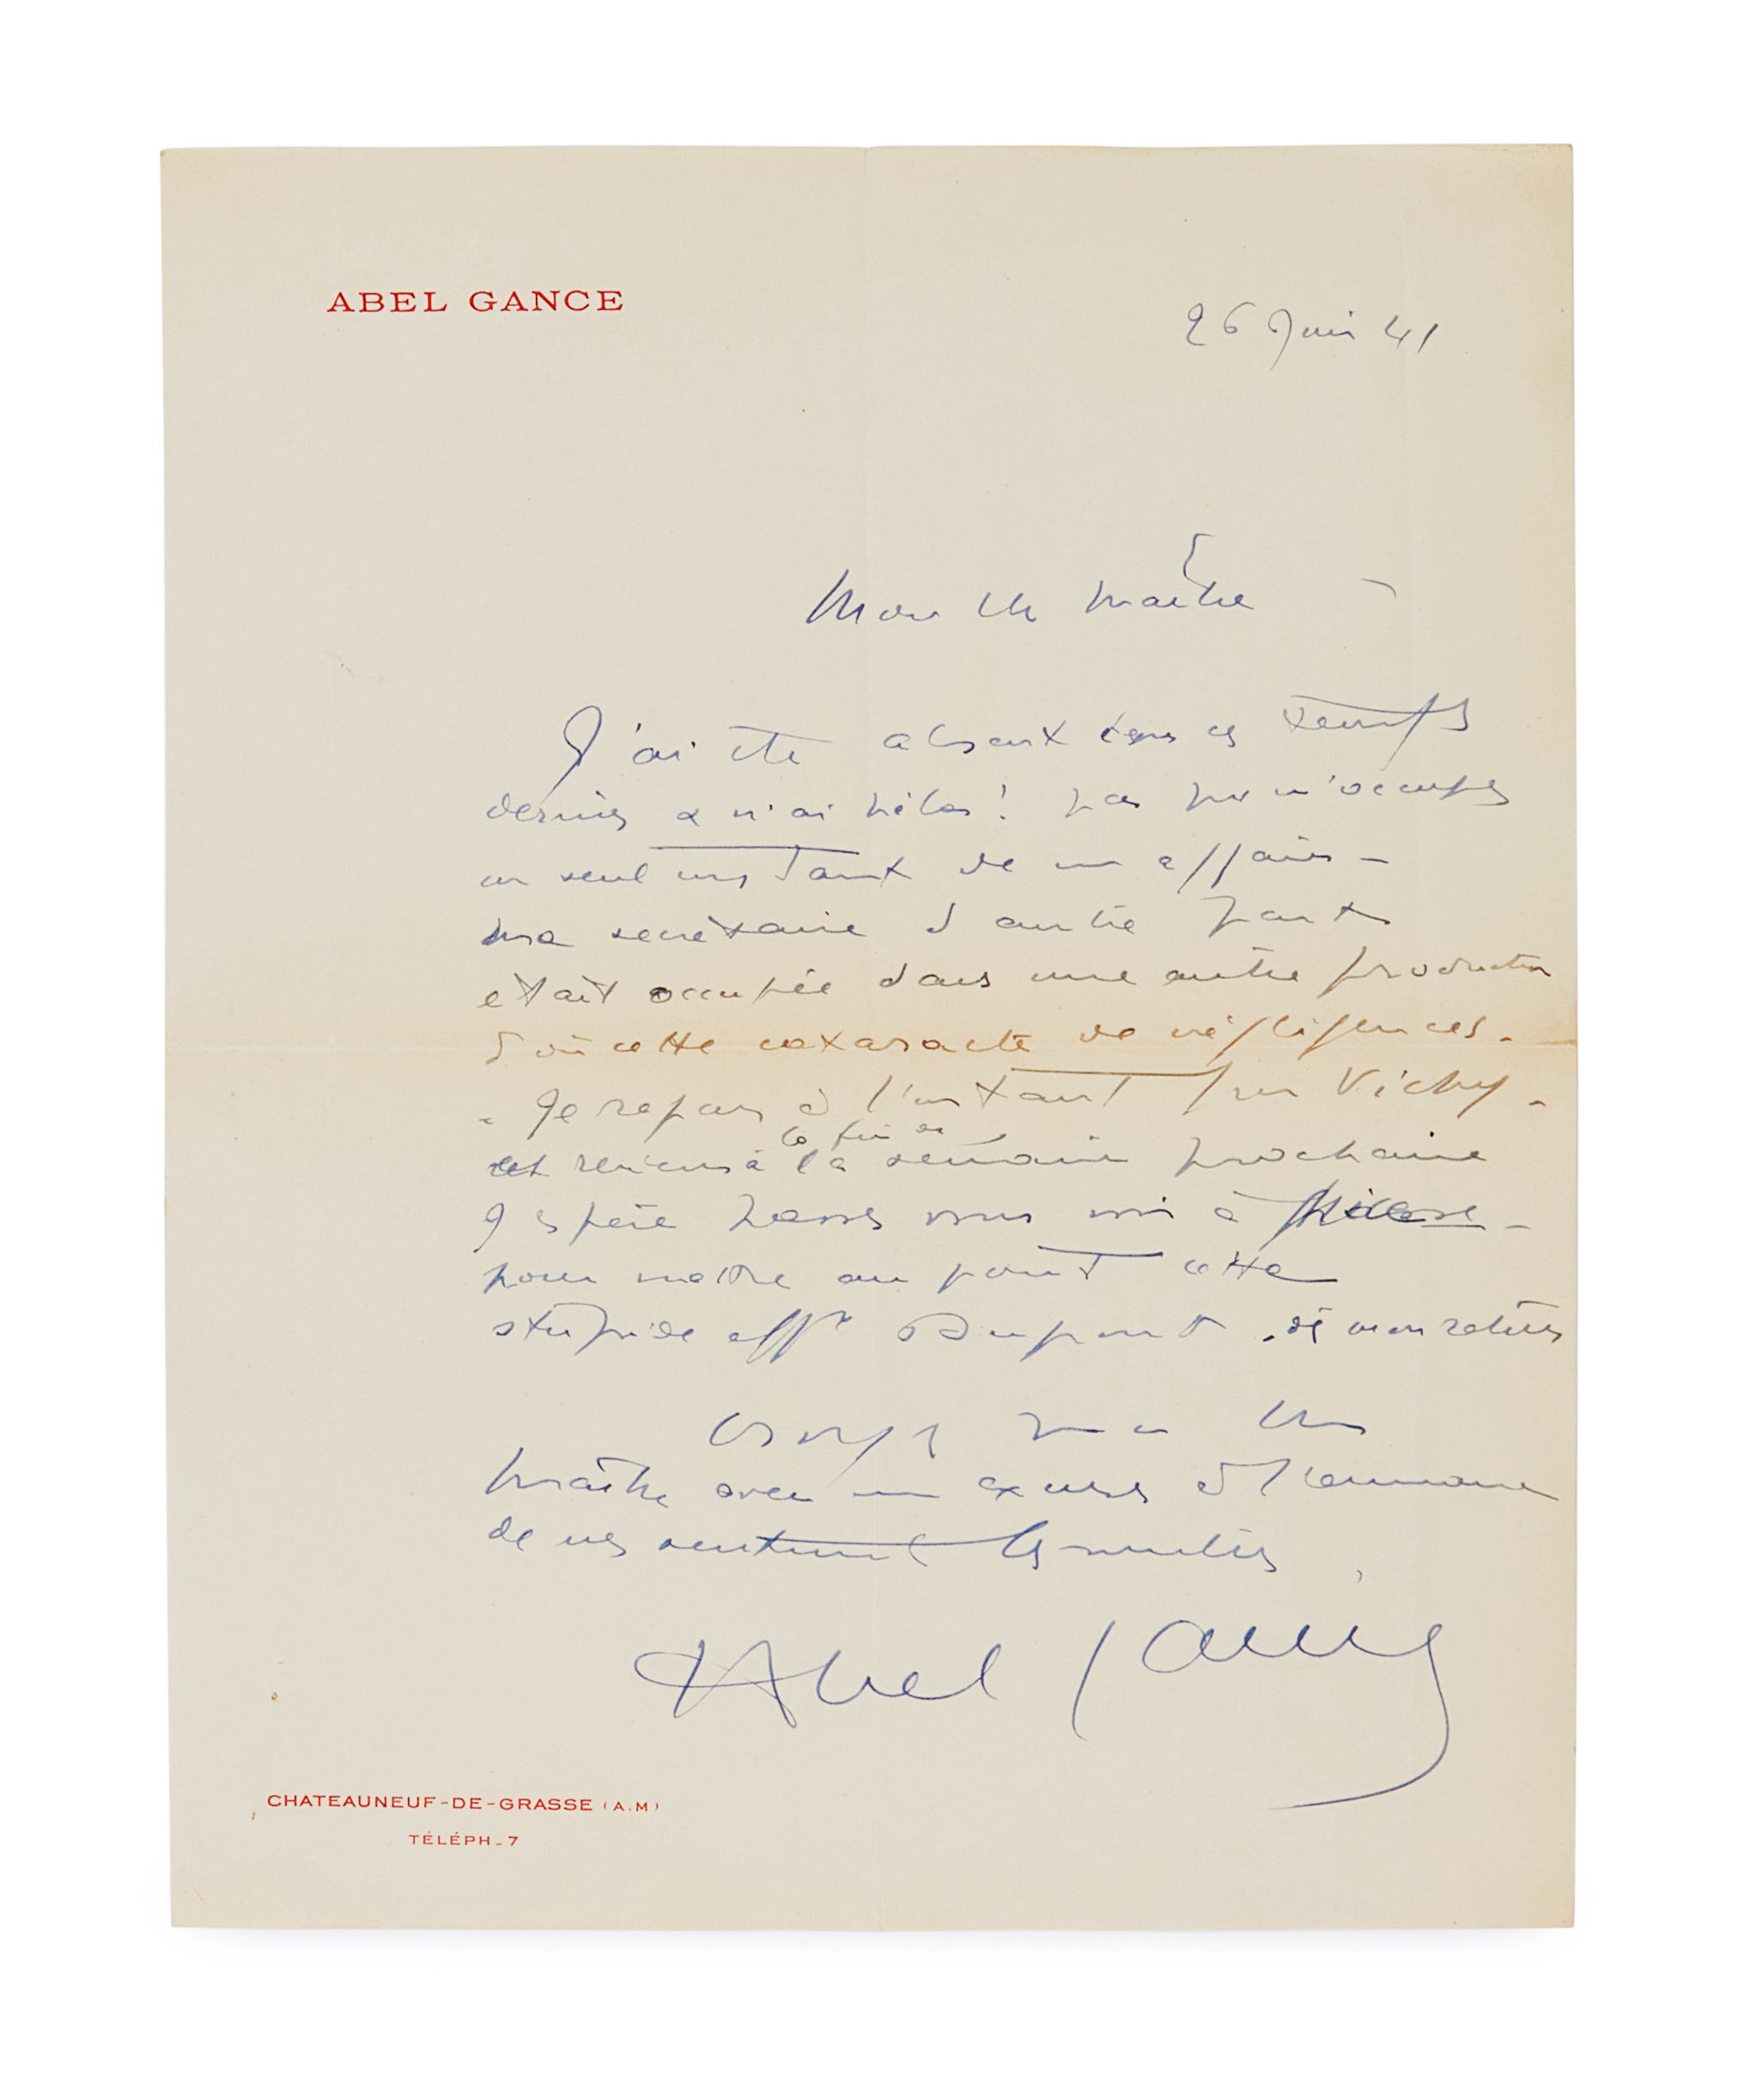 ABEL GANCE
26 Juin 41
Mon ch maître
J'ai été absent tous ces temps
derniers & n'ai hélas ! pas pu m'occuper
un seul instant de mes affaires -
Ma secrétaire d'autre part
était occupée dans une autre production
d'où cette cataracte de négligences.
- Je repars à l'instant pour Vichy -
et reviens à la fin de la semaine prochaine
J'espère vous voir à
pour mettre au point cette
stupide affre Dupont
Croyez moi cher
maître avec mes excuses à l'assurance
de mes sentiments les meilleurs
Abel Gance
CHATEAUNEUF-DE-GRASSE (A.M)
TÉLÉPH_7